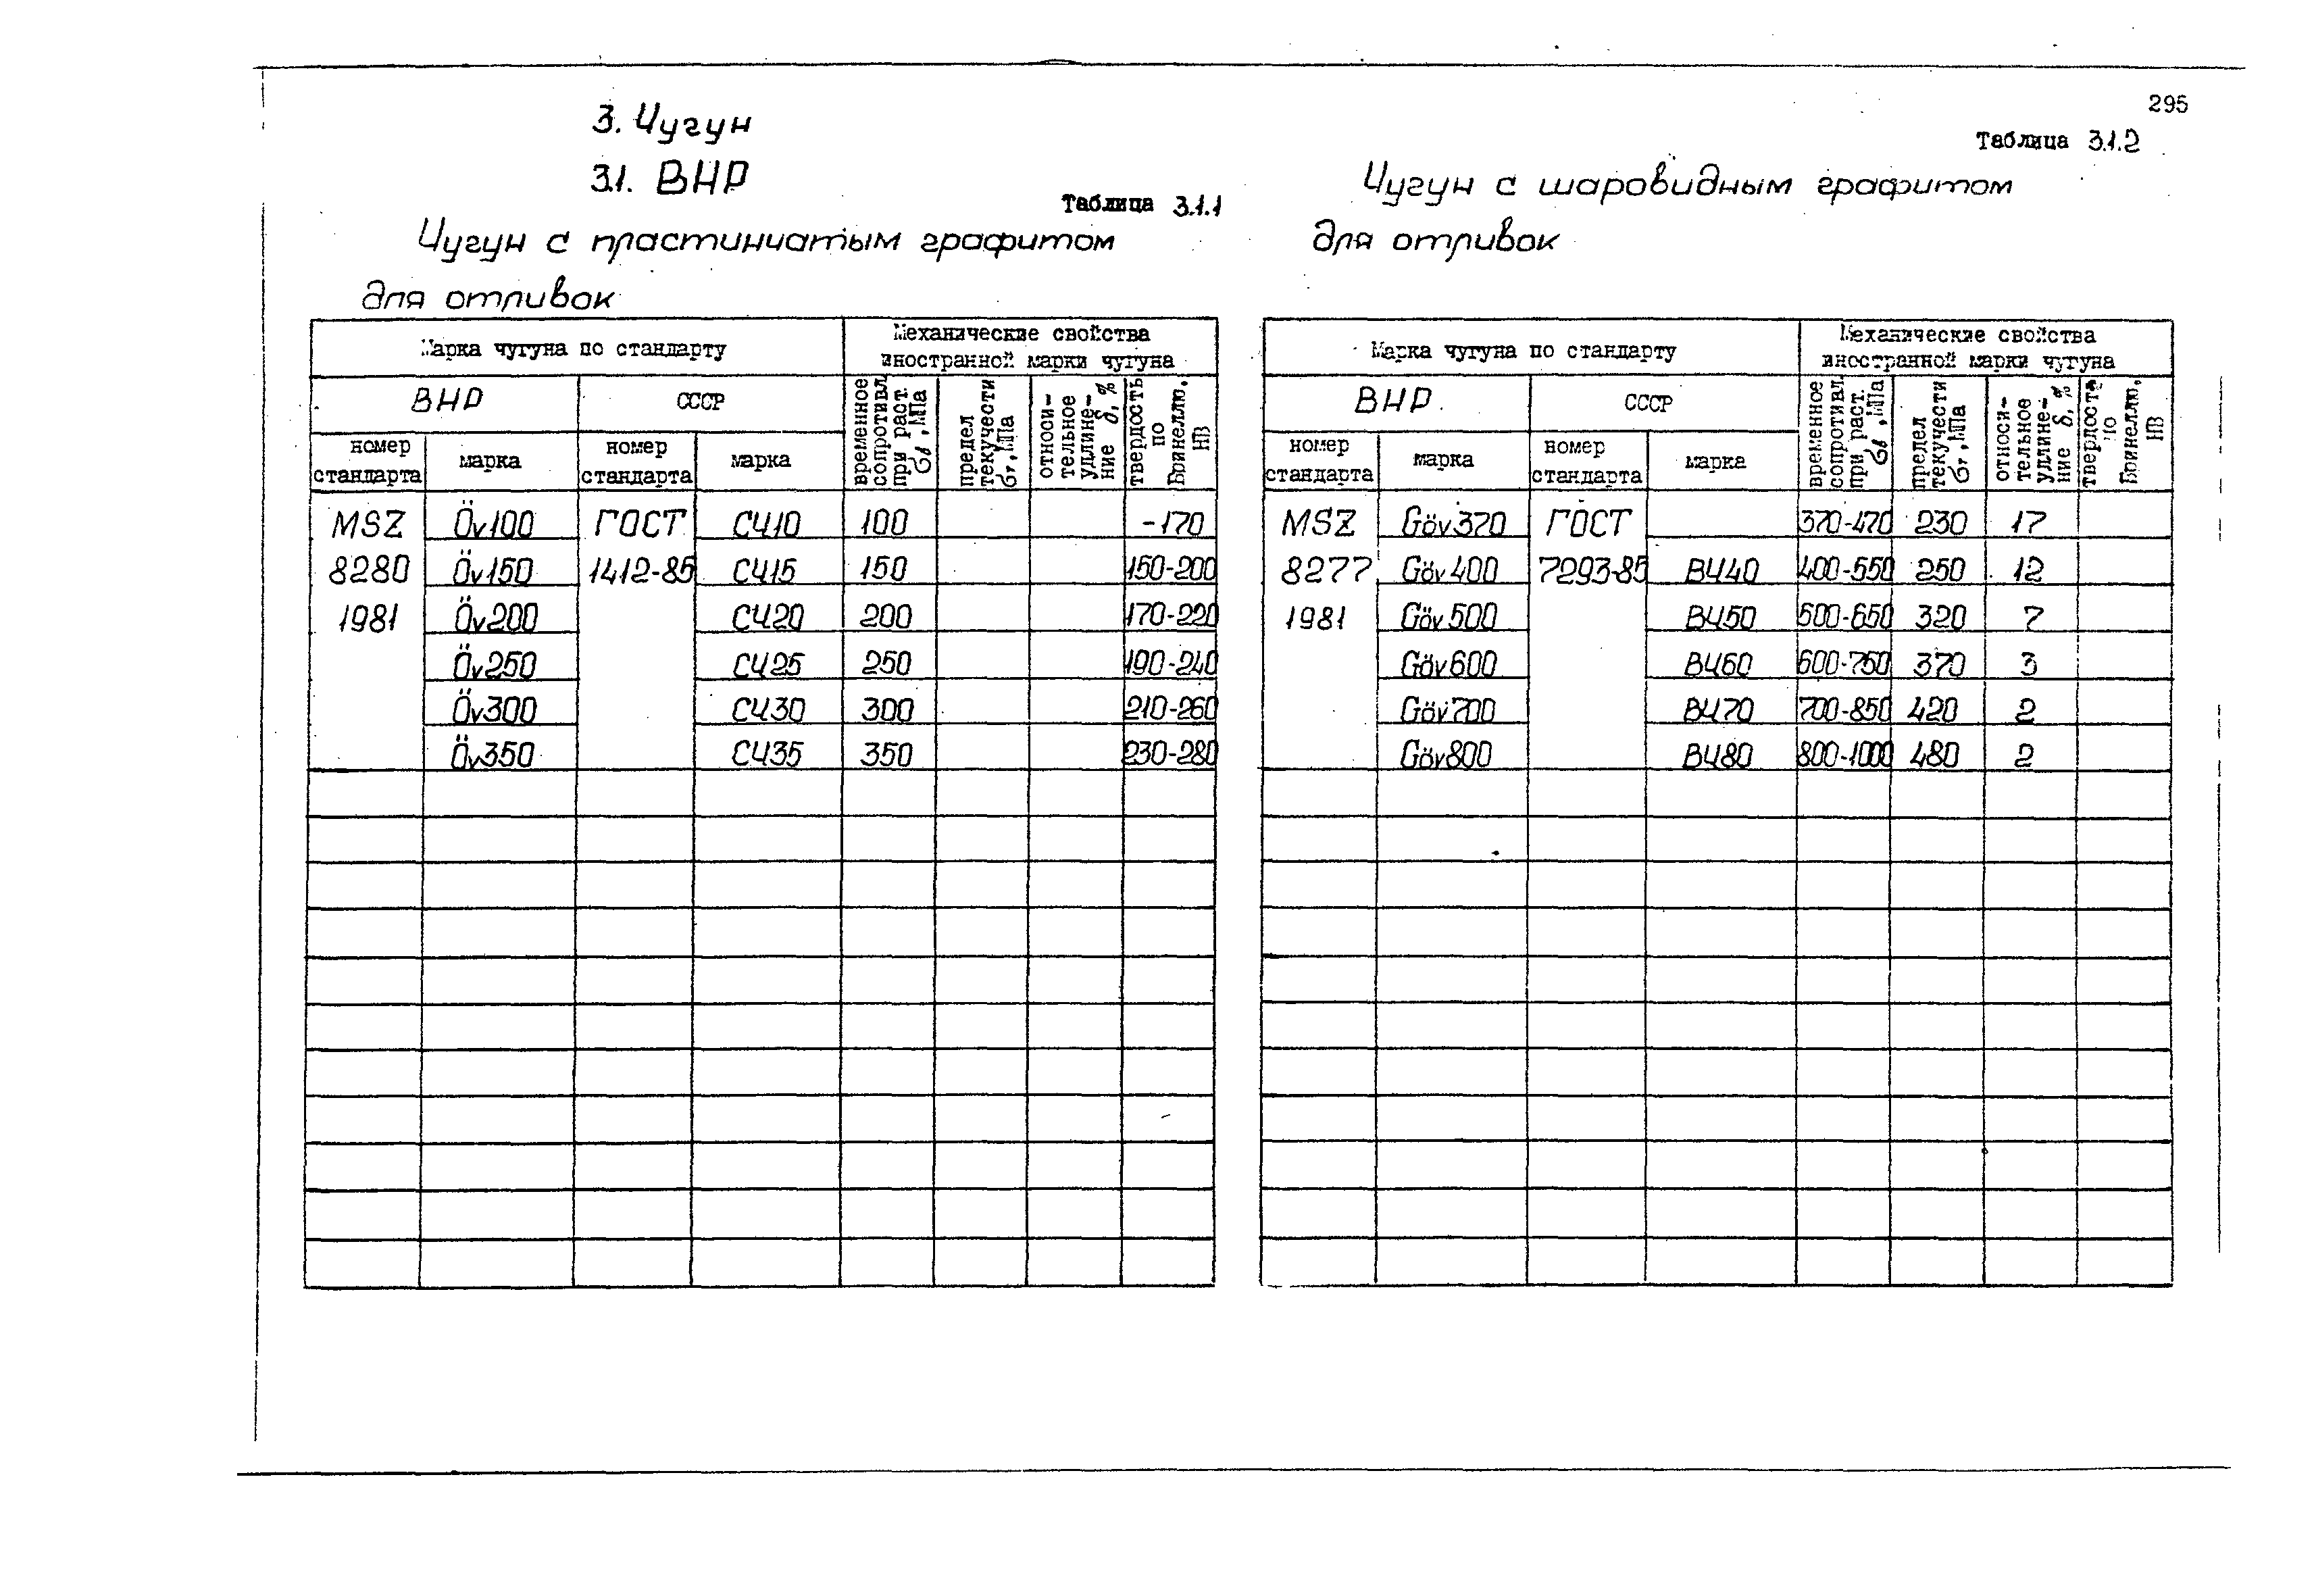 295
3. Чугун
3.1. ВНР
Таблица 3.1.1
Чугун с пластинчатым графитом
для отливок
Марка чугуна по стандарту
Механические свойства
иностранной марки чугуна
ВНР
СССР
временное сопротивл. при раст. σв, МПа
предел текучести σт, МПа
относи-тельное удлине-ние δ, %
твердость по Бринеллю, НВ
номер стандарта
марка
номер стандарта
марка
MSZ Öv100 ГОСТ СЧ10 100 -170
8280 Öv150 1412-85 СЧ15 150 150-200
1981 Öv200 СЧ20 200 170-220
Öv250 СЧ25 250 190-240
Öv300 СЧ30 300 210-260
Öv350 СЧ35 350 230-280
Таблица 3.1.2
Чугун с шаровидным графитом
для отливок
Марка чугуна по стандарту
Механические свойства
иностранной марки чугуна
ВНР
СССР
временное сопротивл. при раст. σв, МПа
предел текучести σт, МПа
относи-тельное удлине-ние δ, %
твердость по Бринеллю, НВ
номер стандарта
марка
номер стандарта
марка
MSZ Göv370 ГОСТ 370-470 230 17
8277 Göv400 7293-85 ВЧ40 400-550 250 12
1981 Göv500 ВЧ50 500-650 320 7
Göv600 ВЧ60 600-750 370 3
Göv700 ВЧ70 700-850 420 2
Göv800 ВЧ80 800-1000 480 2